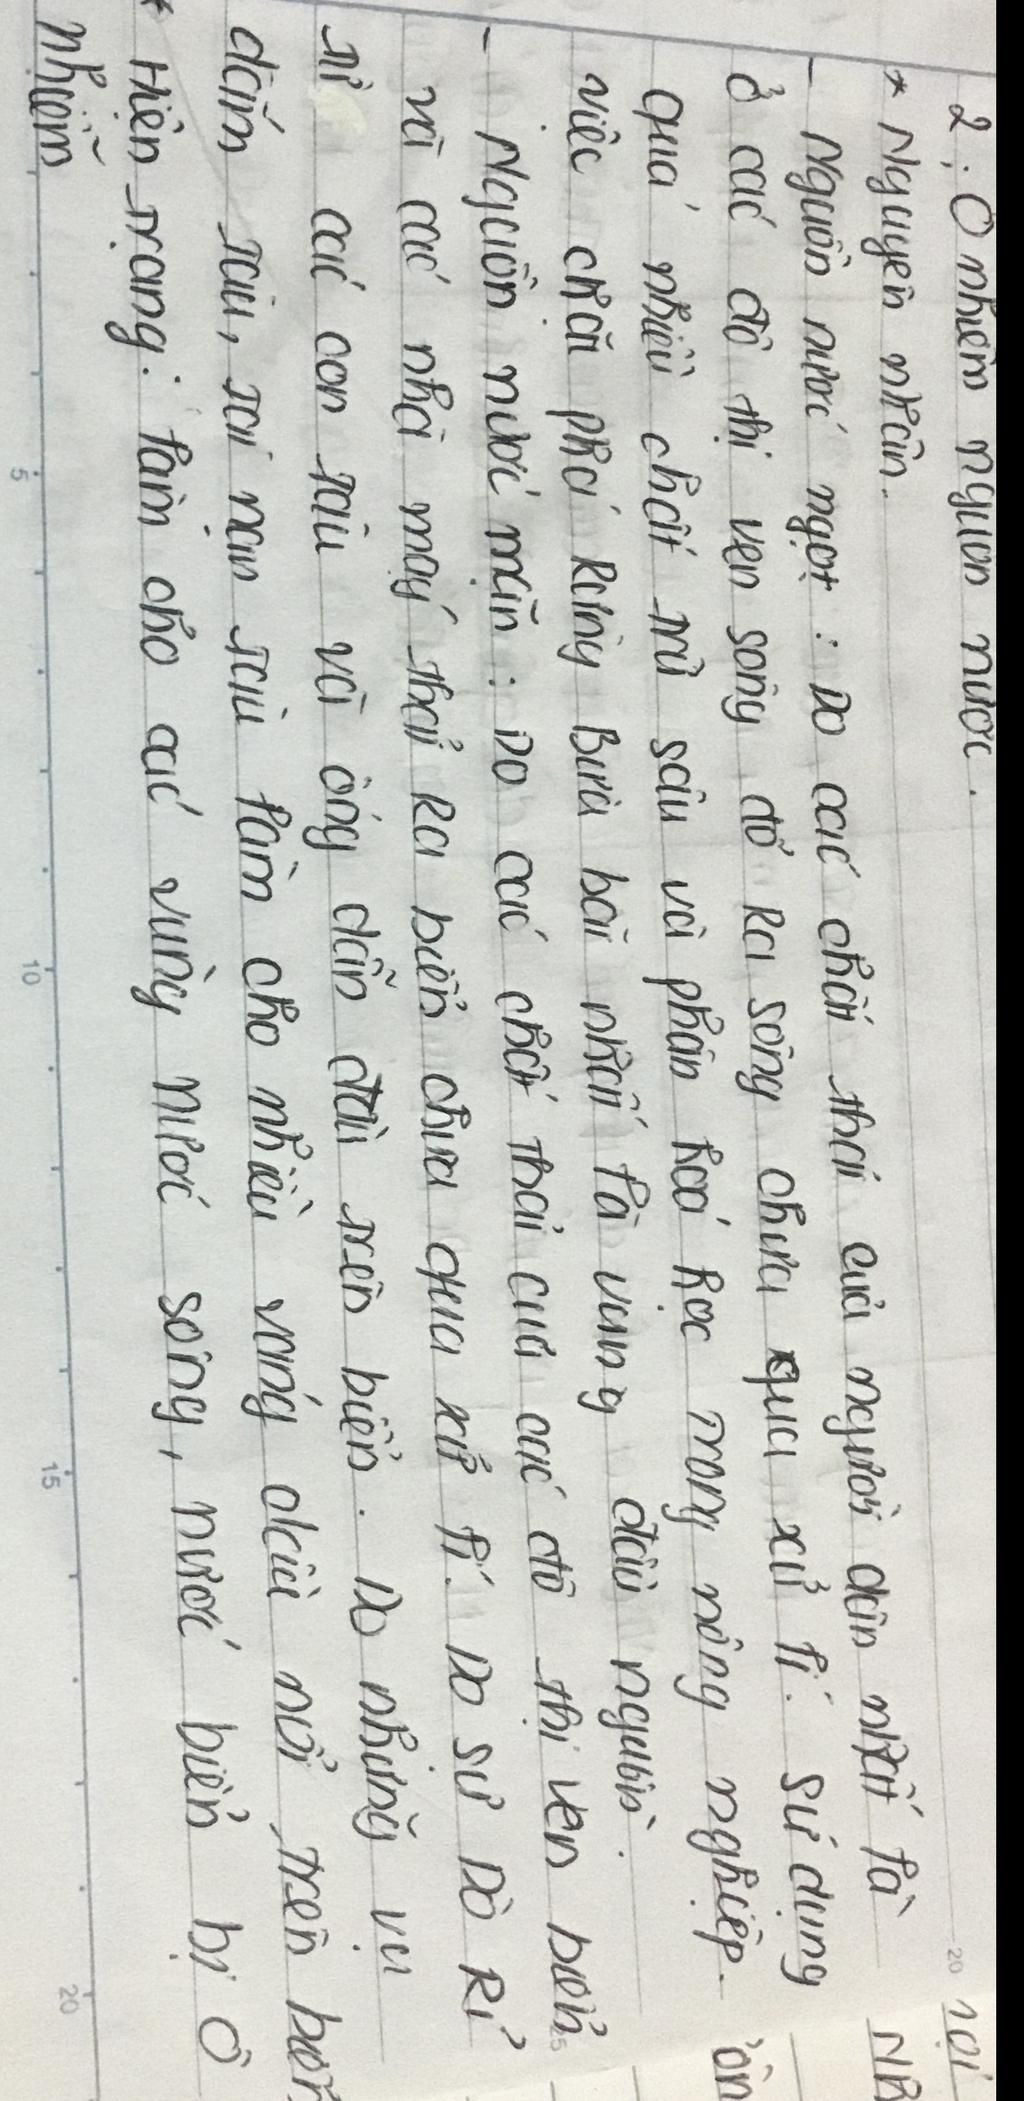 2. Ô nhiễm nguồn nước.
* Nguyên nhân.
- Nguồn nước ngọt: Do các chất thải của người dân nhất là
ở các đô thị ven sông đổ ra sông chưa qua xử lí. Sử dụng
quá nhiều chất trừ sâu và phân hoá học trong nông nghiệp.
việc chặt phá rừng Bừa bãi nhất là vùng đầu nguồn.
- Nguồn nước mặn: Do các chất thải của các đô thị ven biển
và các nhà máy thải ra biển chưa qua xử lí. Do sự Dò Rỉ
từ các con tàu và ống dẫn dầu trên biển. Do những vụ
đắm tàu, tai nạn tàu làm cho nhiều váng dầu nổi trên biển
* Hiện trạng: làm cho các vùng nước sông, nước biển bị ô
nhiễm
5
10
15
20
20